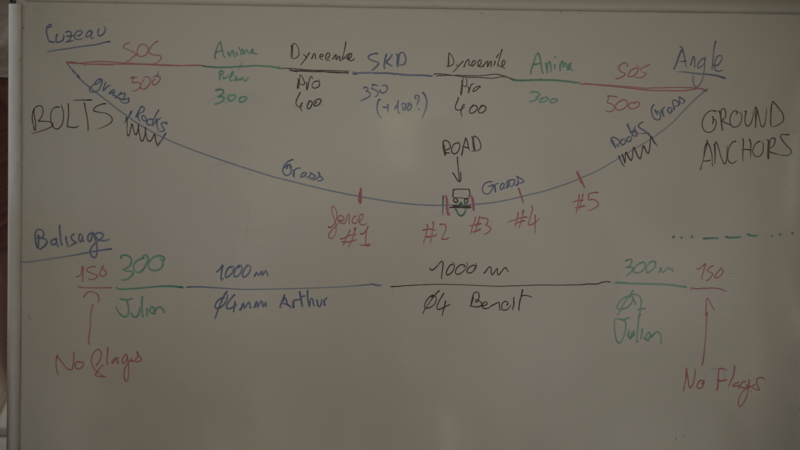 Luzeau
SOS
Anima
Dyneemite
SKD
Dyneemite
Anima
SOS
Angle
500
300
Pro
400
350
(+100?)
Pro
400
300
500
BOLTS
Grass
Rocks
Grass
ROAD
Grass
Rocks
Grass
GROUND
ANCHORS
fence
#1
#2
#3
#4
#5
Balisage
150
300
1000m
1000m
300m
150
Julien
Ø4mm Arthur
Ø4 Benoit
Julien
No flags
No Flags